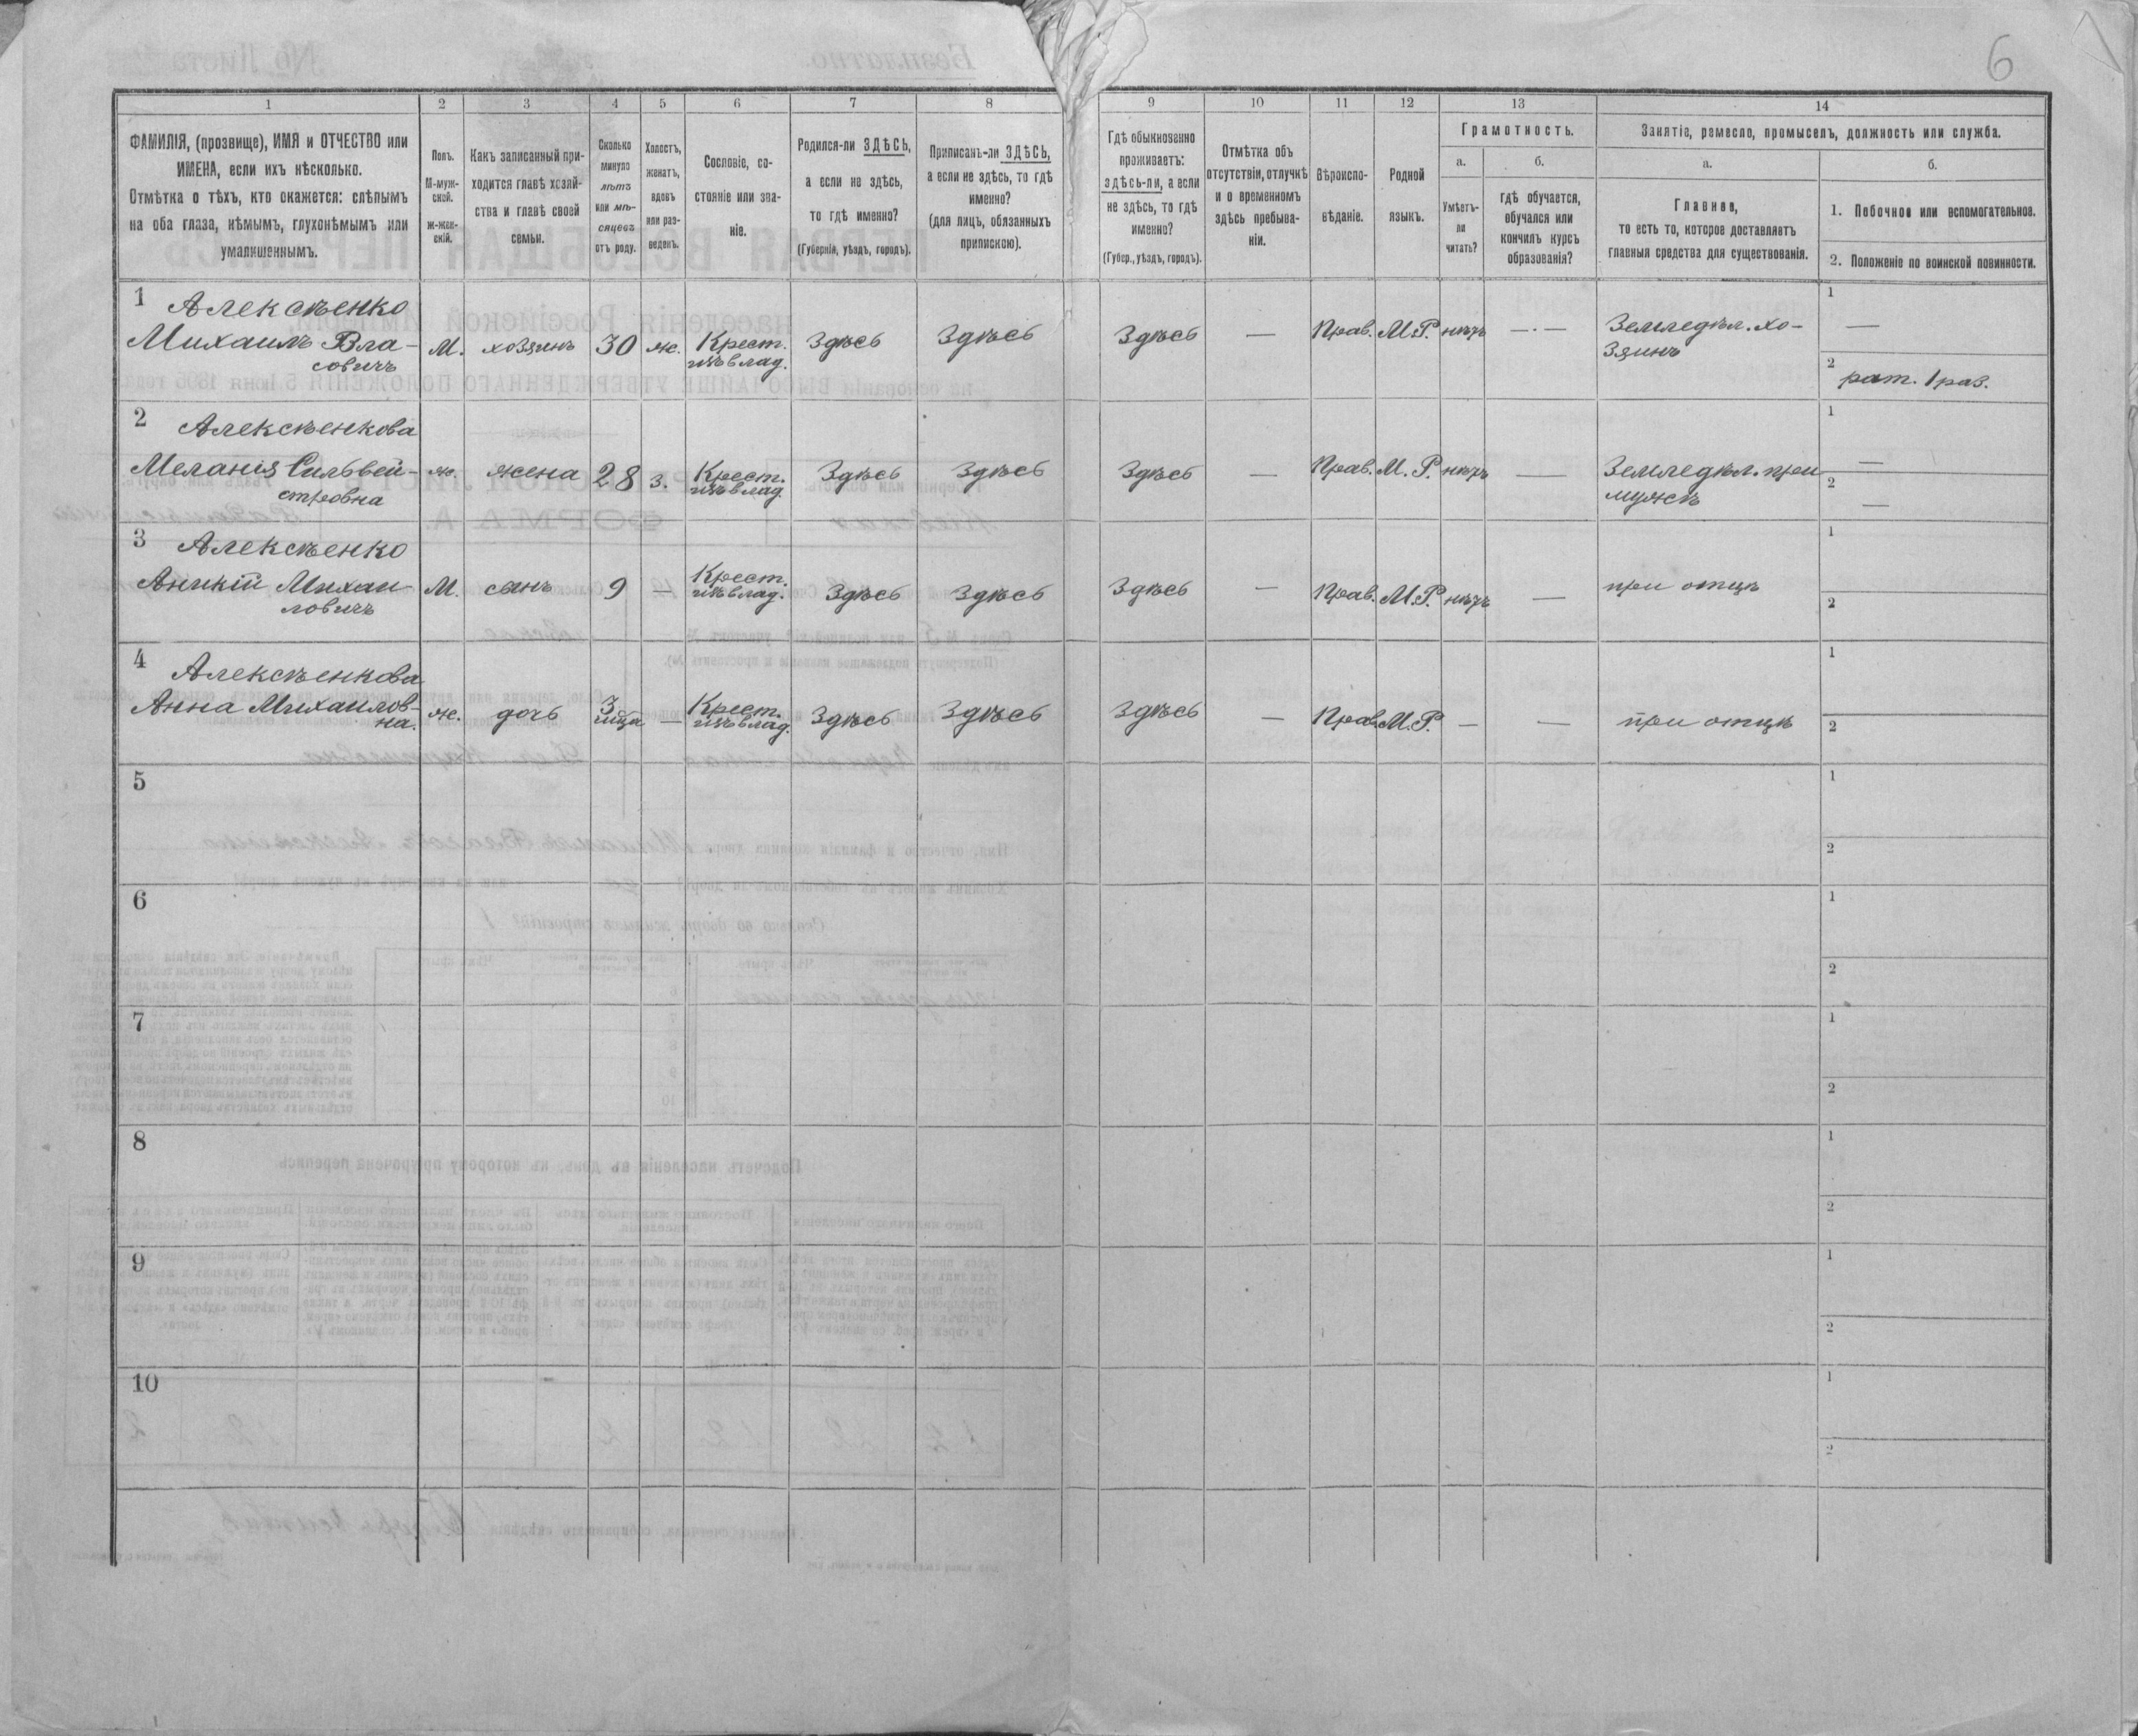 6
1 2 3 4 5 6 7 8 9 10 11 12 13 14
ФАМИЛІЯ, (прозвище), ИМЯ и ОТЧЕСТВО или
ИМЕНА, если ихъ нѣсколько.
Отмѣтка о тѣхъ, кто окажется: слѣпымъ
на оба глаза, нѣмымъ, глухонѣмымъ или
умалишеннымъ.
Полъ.
М-муж-
ской.
ж-жен-
скій.
Какъ записанный при-
ходится главѣ хозяй-
ства и главѣ своей
семьи.
Сколько
минуло
лѣтъ
или мѣ-
сяцевъ
отъ роду.
Холостъ,
женатъ,
вдовъ
или раз-
веденъ.
Сословіе, со-
стояніе или зва-
ніе.
Родился-ли ЗДѢСЬ,
а если не здѣсь,
то гдѣ именно?
(Губернія, уѣздъ, городъ).
Приписанъ-ли ЗДѢСЬ,
а если не здѣсь, то гдѣ
именно?
(для лицъ, обязанныхъ
припискою).
Гдѣ обыкновенно
проживаетъ:
здѣсь-ли, а если
не здѣсь, то гдѣ
именно?
(Губер., уѣздъ, городъ).
Отмѣтка объ
отсутствіи, отлучкѣ
и о временномъ
здѣсь пребыва-
ніи.
Вѣроиспо-
вѣданіе.
Родной
языкъ.
Грамотность.
а.
Умѣетъ-
ли
читать?
б.
гдѣ обучается,
обучался или
кончилъ курсъ
образованія?
Занятіе, ремесло, промыселъ, должность или служба.
а.
Главное,
то есть то, которое доставляетъ
главныя средства для существованія.
б.
1. Побочное или вспомогательное.
2. Положеніе по воинской повинности.
1 Алексѣенко
Михаилъ Вла-
совичъ
М. хозяинъ 30 ж. Крест.
изъ влад.
Здѣсь Здѣсь Здѣсь — Прав. М.Р. нѣтъ —·— Земледѣл. хо-
зяинъ
1 —
2 рат. 1 раз.
2 Алексѣенкова
Меланія Сильвей-
стровна
ж. жена 28 з. Крест.
изъ влад.
Здѣсь Здѣсь Здѣсь — Прав. М.Р. нѣтъ — Земледѣл. при
мужѣ
1 —
2 —
3 Алексѣенко
Аникій Михаи-
ловичъ
М. сынъ 9 — Крест.
изъ влад.
Здѣсь Здѣсь Здѣсь — Прав. М.Р. нѣтъ — при отцѣ
1
2
4 Алексѣенкова
Анна Михаилов-
на.
ж. дочь 3
м-ца — Крест.
изъ влад.
Здѣсь Здѣсь Здѣсь — Прав. М.Р. — — при отцѣ
1
2
5
1
2
6
1
2
7
1
2
8
1
2
9
1
2
10
1
2